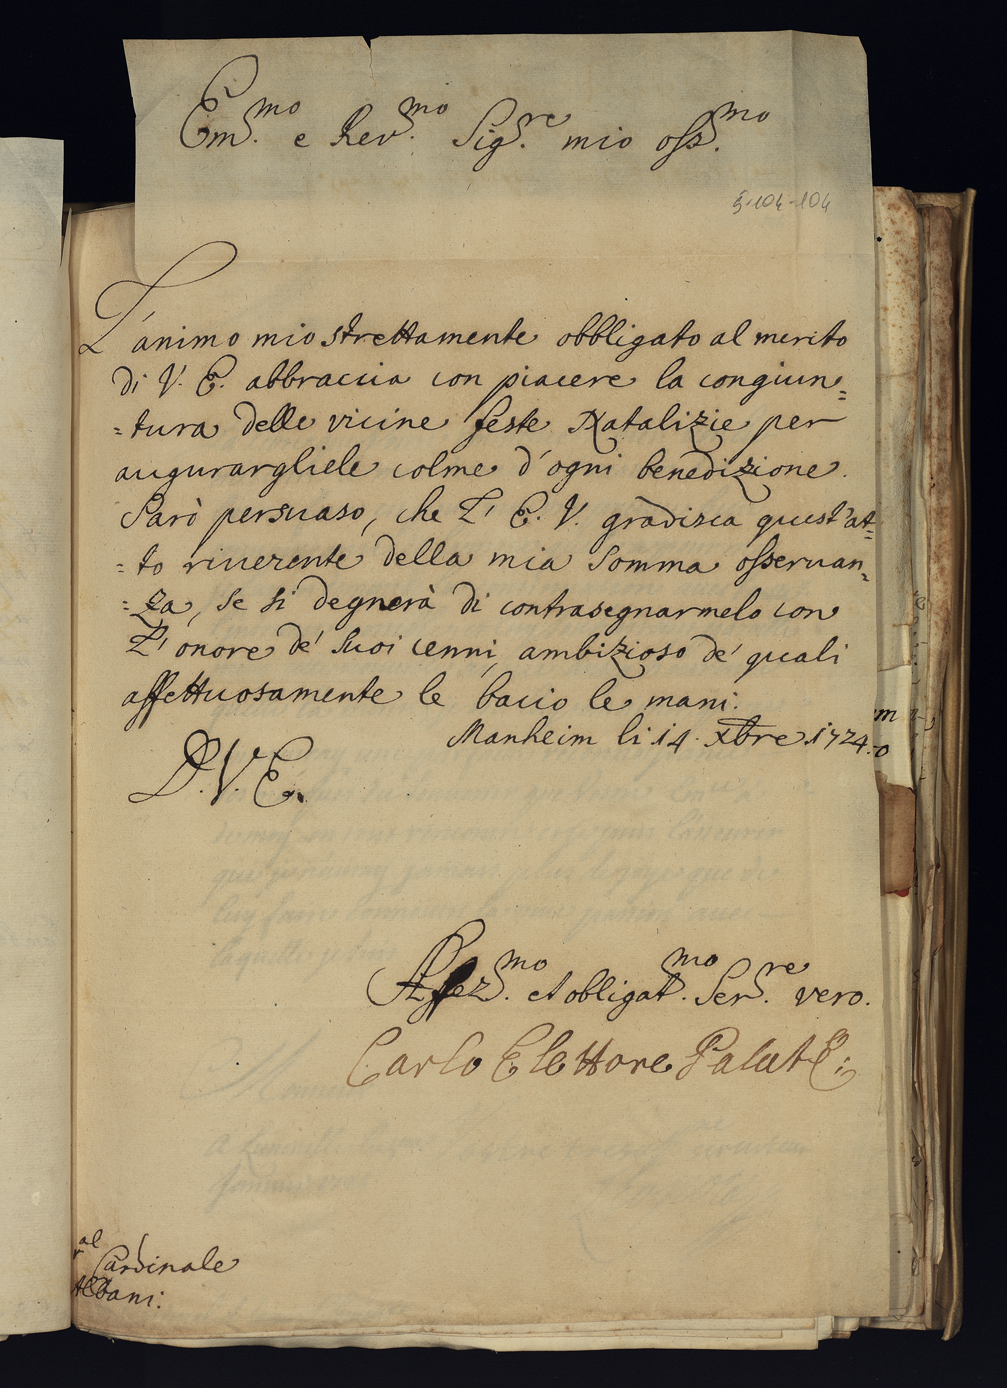 Em.mo e Rev.mo Sig.re mio oss.mo
5-104-104
L'animo mio strettamente obbligato al merito
di V. E. abbraccia con piacere la congiun=
=tura delle vicine feste Natalizie per
augurargliele colme d'ogni benedizione.
Sarò persuaso, che L' E. V. gradisca quest'at=
=to riverente della mia somma osservan=
=za, se si degnerà di contrasegnarmelo con
L'onore de' suoi cenni, ambizioso de' quali
affettuosamente le bacio le mani.
Manheim li 14. Xbre 1724.
D. V. E.
Affez.mo et obligat.mo Ser.re vero.
Carlo Elettore Palat
Cardinale
Albani: